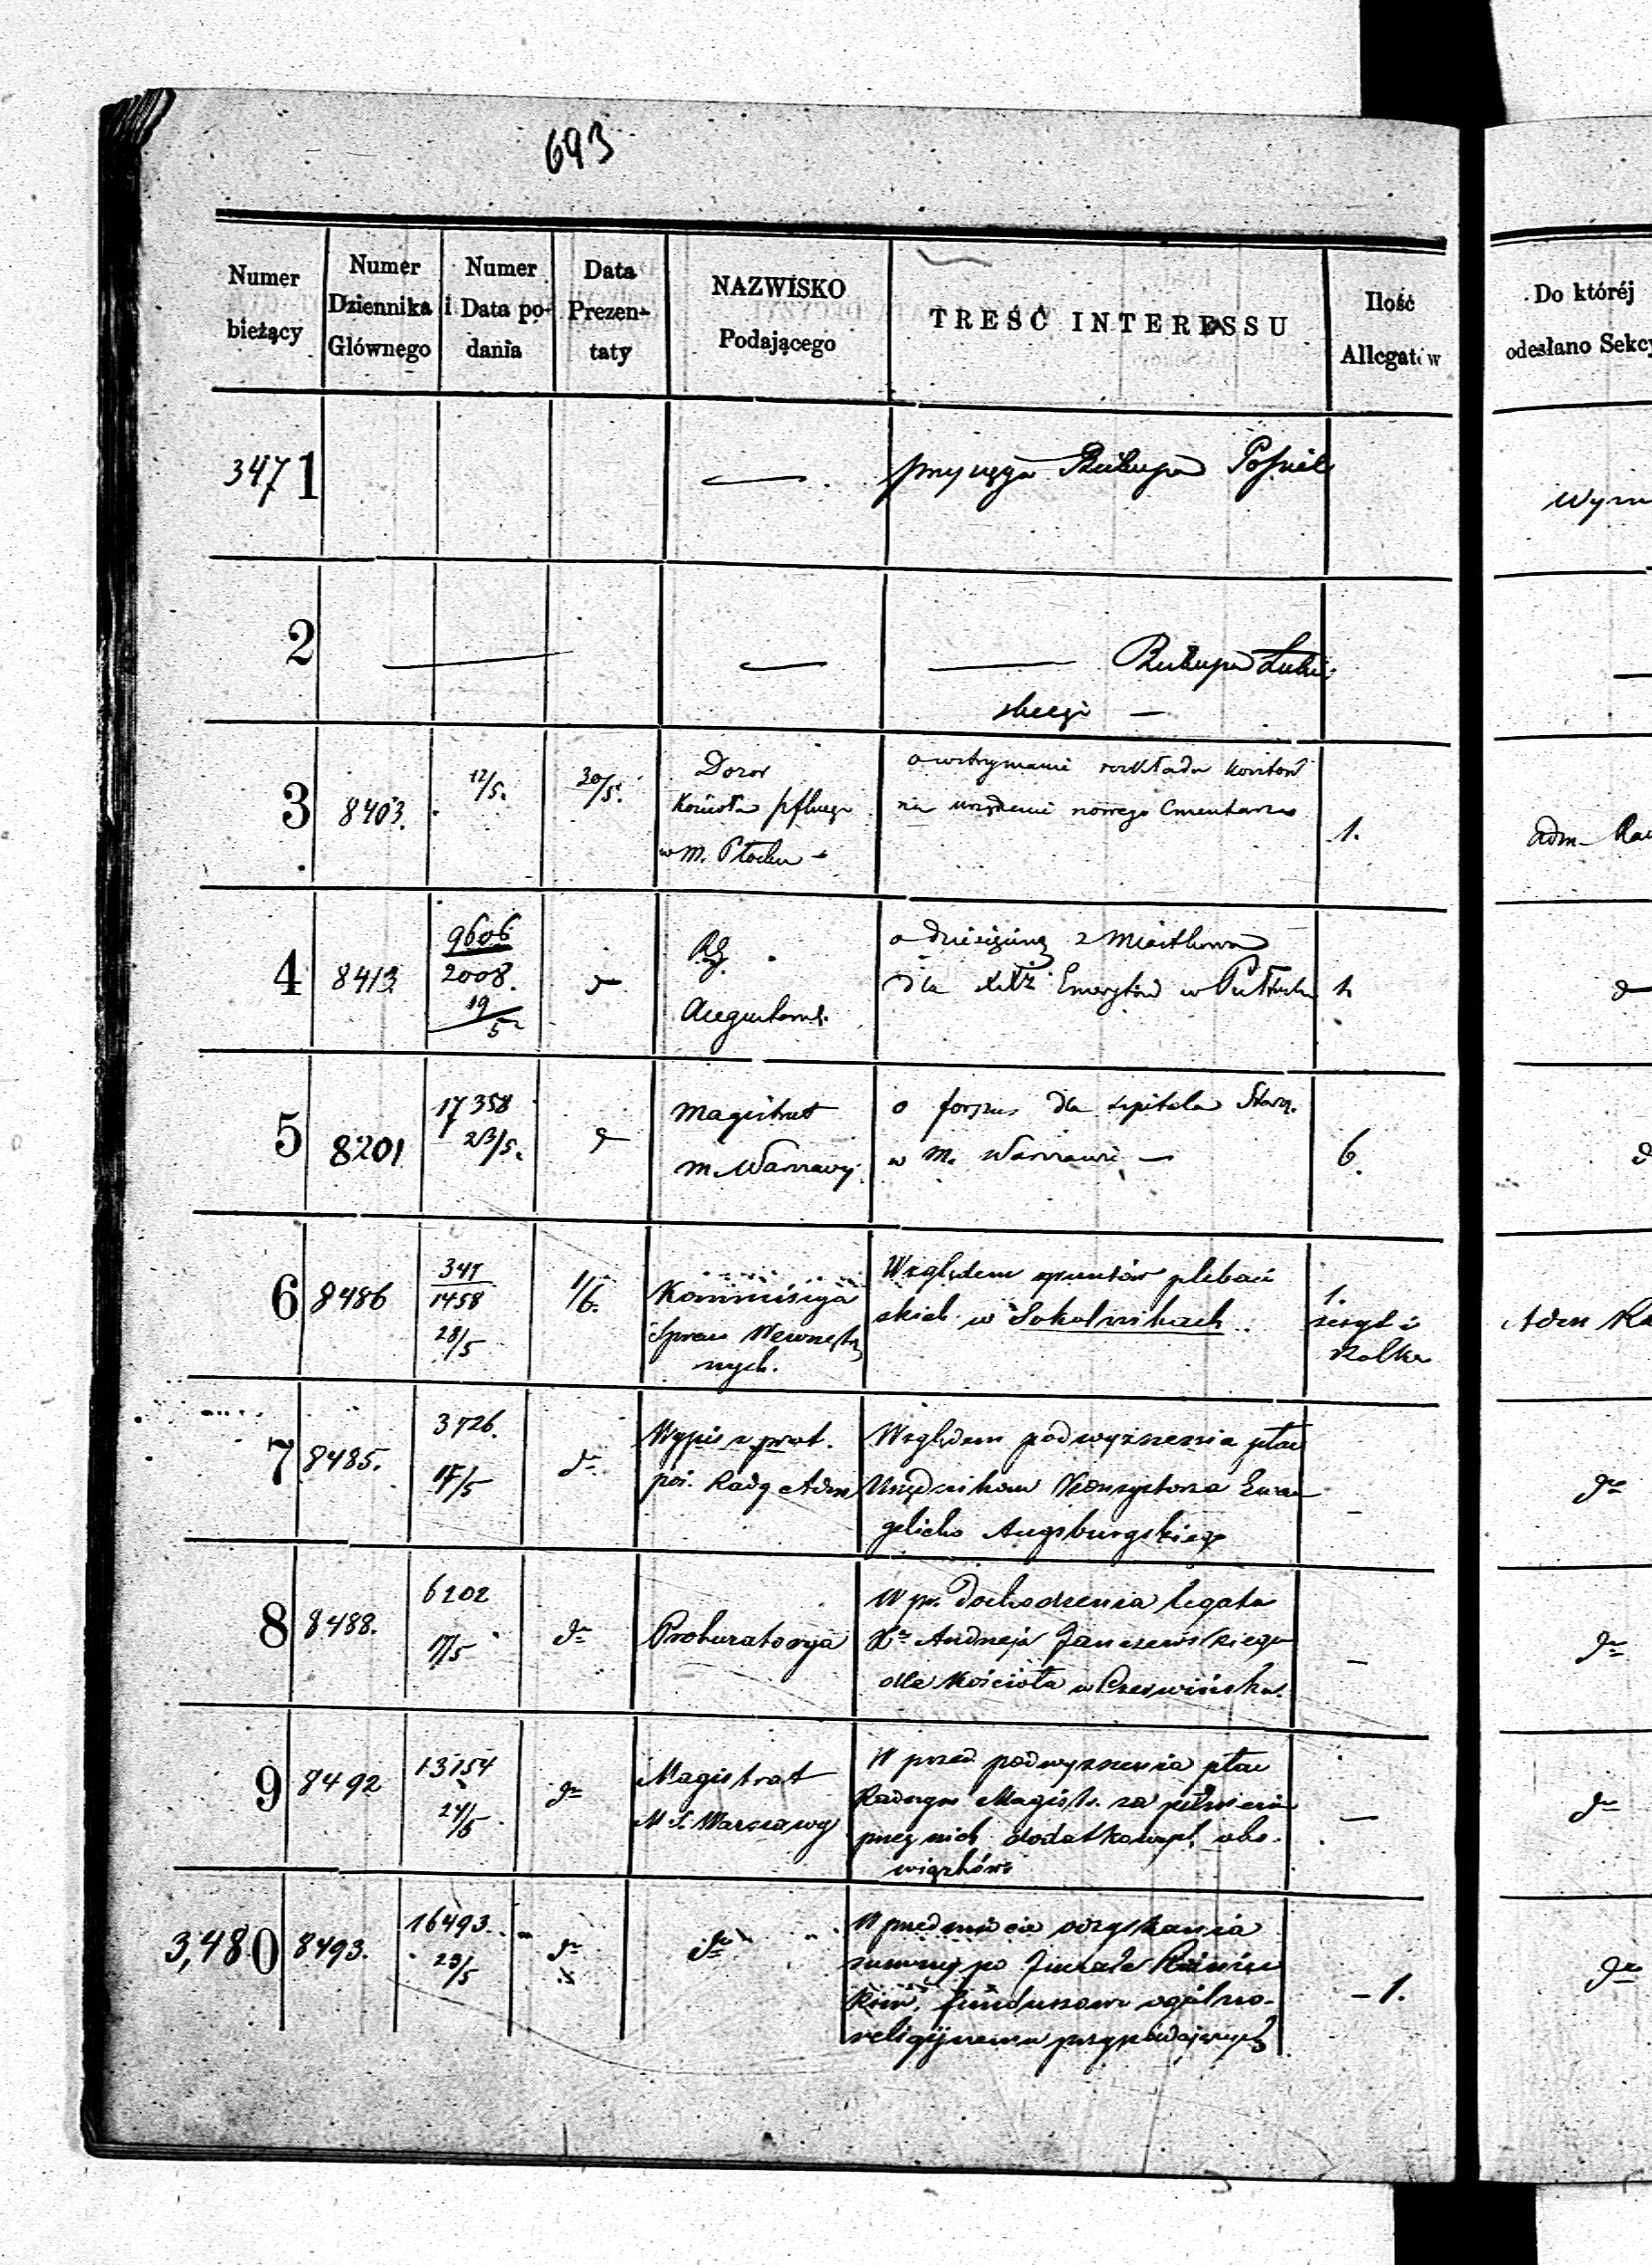 693
Numer bieżący
Numer Dziennika Głównego
Numer i Data podania
Data Prezentaty
NAZWISKO Podającego
TREŚĆ INTERESSU
Ilość Allegatów
Do któréj odesłano Sekcy
3471
przysięga Biskupa
2
Biskupa Lubelskiego —
3 8403. 12/5. 30/5.
Dozor
Kościoła
w M. Płocku
o wstrzymanie rozkładu kosztów
na urządzenie nowego Cmentarza
1.
Adm
4 8413 9606/2008. 19/5
R.G.
Augustows.
o dziesięcinę z
dla XXży Emerytów w Pułtusku
5 8201 17358 23/5.
Magistrat
m. Warszawy
o dla szpitala Starz.
w M. Warszawie —
6.
6 8486 341/1458 28/5 1/6.
Kommissya
Spraw Wewnętrz
nych.
Względem gruntów plebań
skich w Sokolnikach
1.
zeszyt i
rolka
Adm Ra
7 8485. 3726. 17/5 do
Wypis z prot.
pos. Rady Adm
Względem podwyższenia płac
Urzędnikom Konsystorza Ewan
gelicko Augsburgskiego
–
do
8 8488. 6202 17/5 do
Prokuratorya
W pr. dochodzenia legatu
Xa Andrzeja Janczewskiego
dla Kościoła w Czerwińsku.
–
do
9 8492 13154 24/5 do
Magistrat
M. S. Warszawy
W przed. podwyższenia płac
Radnym Magistr. za pełnienie
przez nich dodatkowych obo-
wiązków
–
do
3,480 8493. 16493. 23/5 do
do
W przedmiocie odzyskania
summy po
funduszowi ogólno-
religijnemu przypadających
– 1.
do